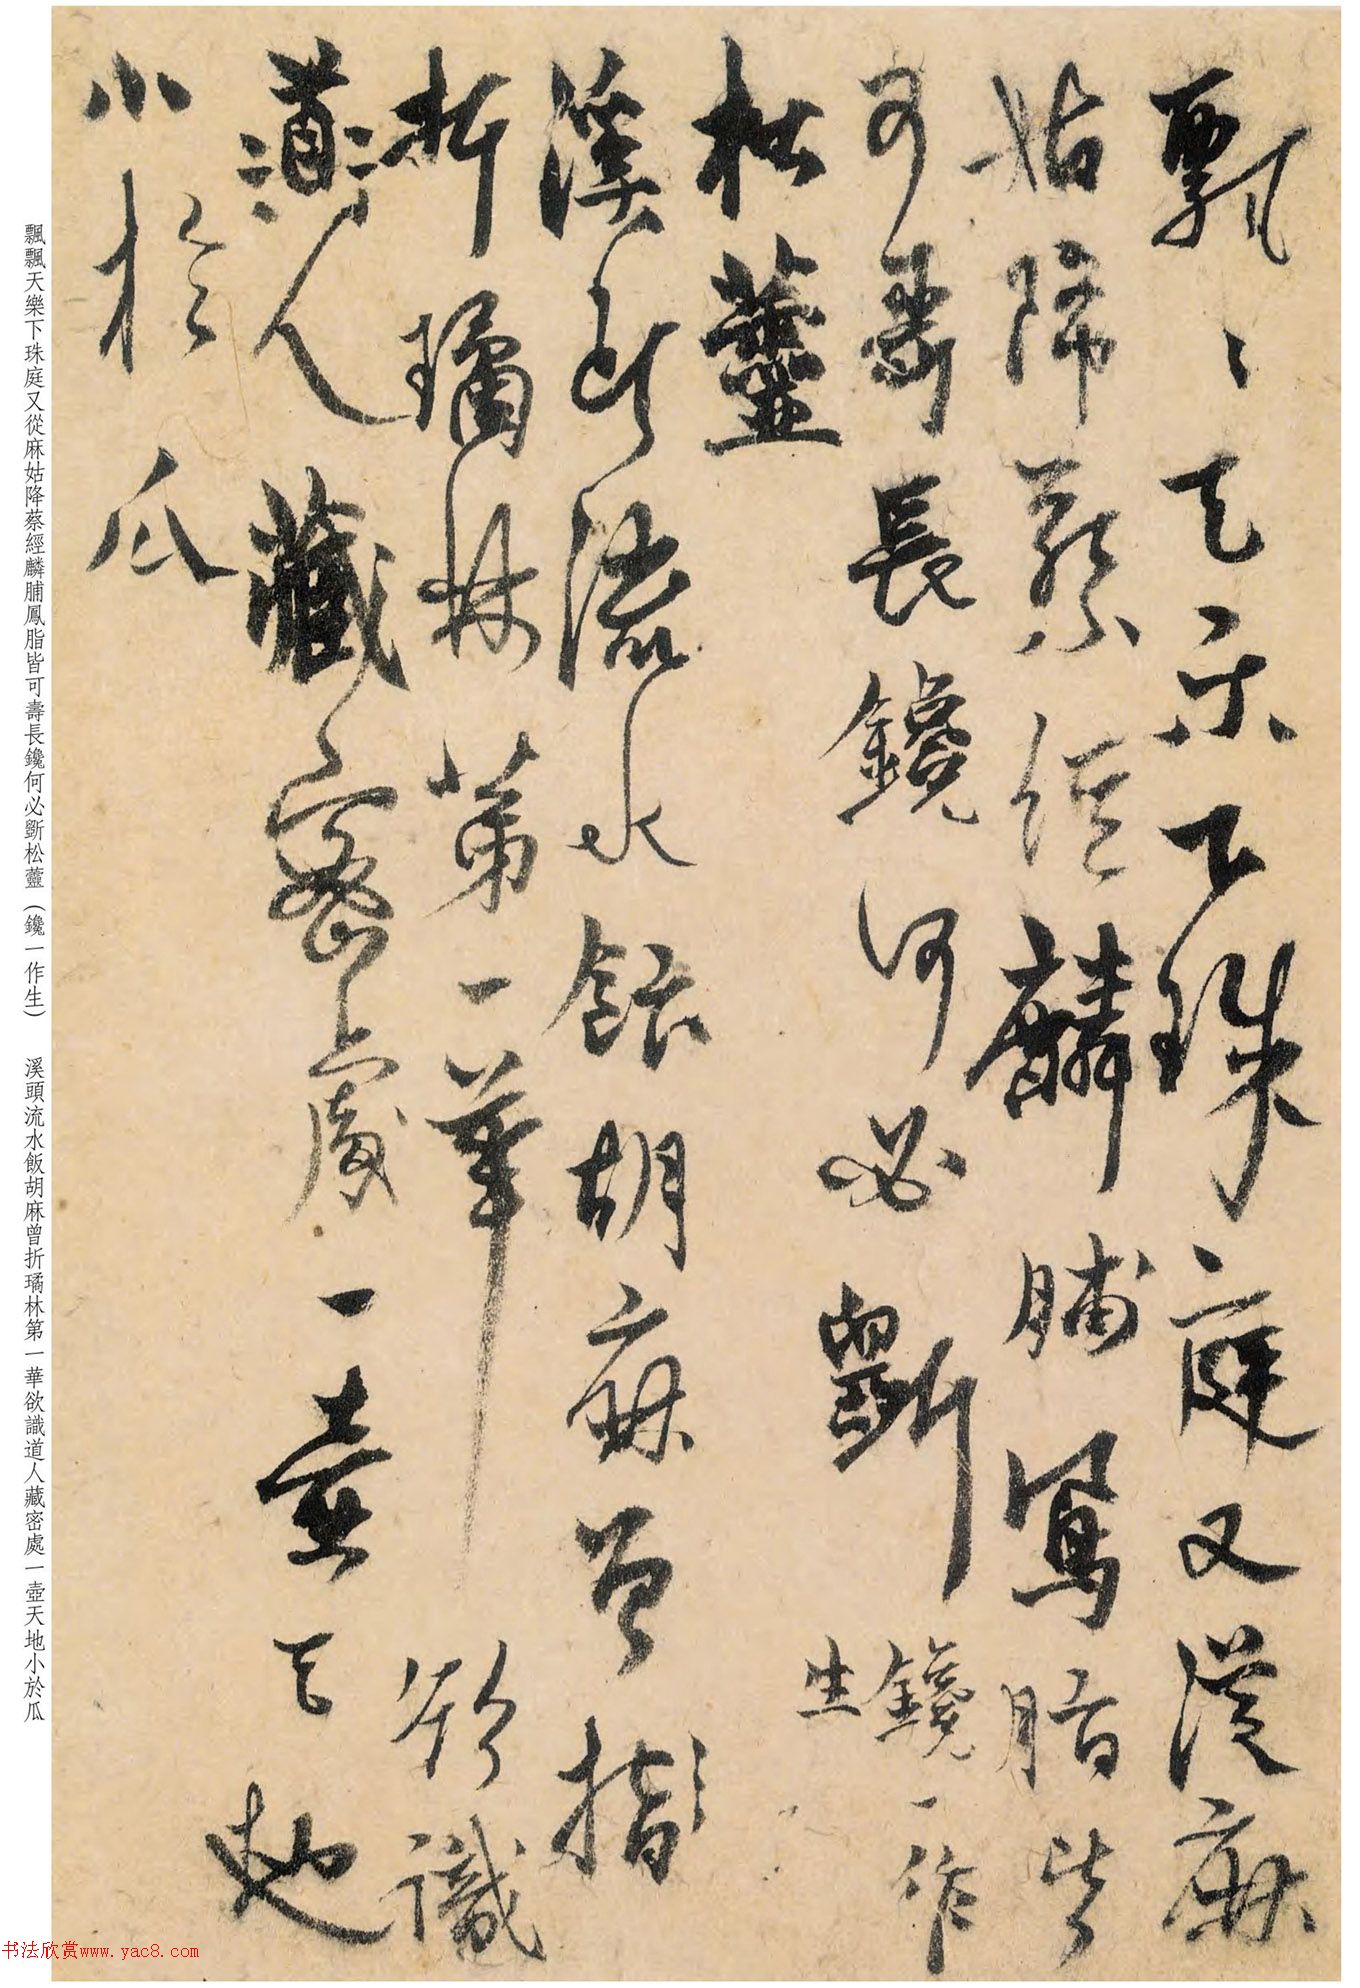 飄〻天樂下珠庭又從麻
姑降蔡經麟脯鳳脂皆
可壽長鑱何必斸 鑱一作
生
松虀
溪頭流水飯胡麻曾指〻
折璚林第一華欲識
道人藏密處一壺天地
小於瓜
飄飄天樂下珠庭又從麻姑降蔡經麟脯鳳脂皆可壽長鑱何必斸松虀（鑱一作生） 溪頭流水飯胡麻曾折璚林第一華欲識道人藏密處一壺天地小於瓜
书法欣赏www.yac8.com